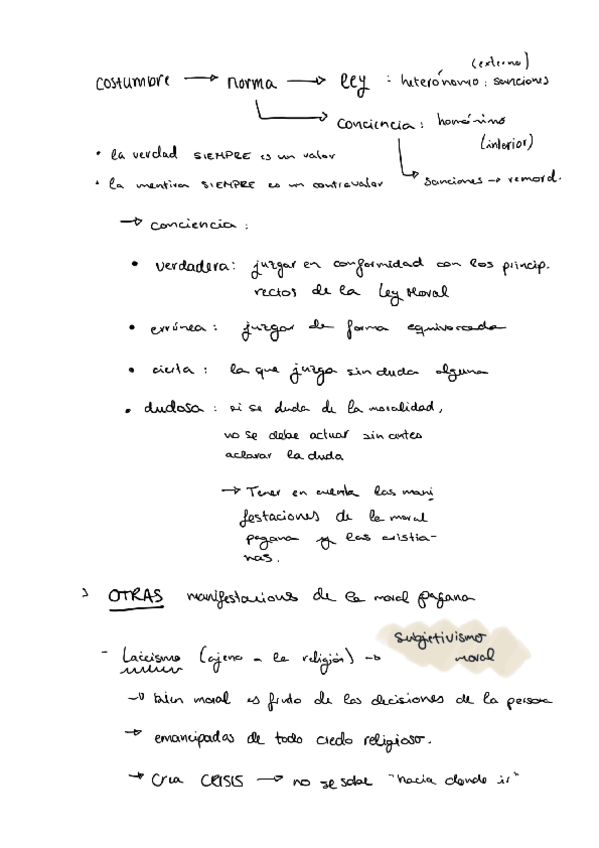 (externo)
costumbre → norma → ley : heterónomo : sanciones
→ conciencia : homónimo
(interior)
• la verdad SIEMPRE es un valor
• la mentira SIEMPRE es un contravalor
→ sanciones → remord.
→ conciencia :
• verdadera : juzgar en conformidad con los princip.
rectos de la Ley Moral
• errónea : juzgar de forma equivocada
• cierta : la que juzga sin duda alguna
• dudosa : si se duda de la moralidad,
no se debe actuar sin antes
aclarar la duda
→ Tener en cuenta las mani
festaciones de la moral
pagana y las cristia-
nas.
OTRAS manifestaciones de la moral pagana
- Laicismo (ajeno a la religión) → subjetivismo
moral
→ bien moral es fruto de las decisiones de la persona
→ emancipadas de todo credo religioso.
→ Crea CRISIS → no se sabe "hacia donde ir"